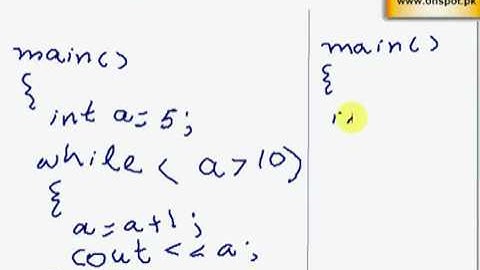 www.onspot.pk
main()
{
int a=5;
while( a>10)
{
a=a+1;
cout<<a;
main()
{